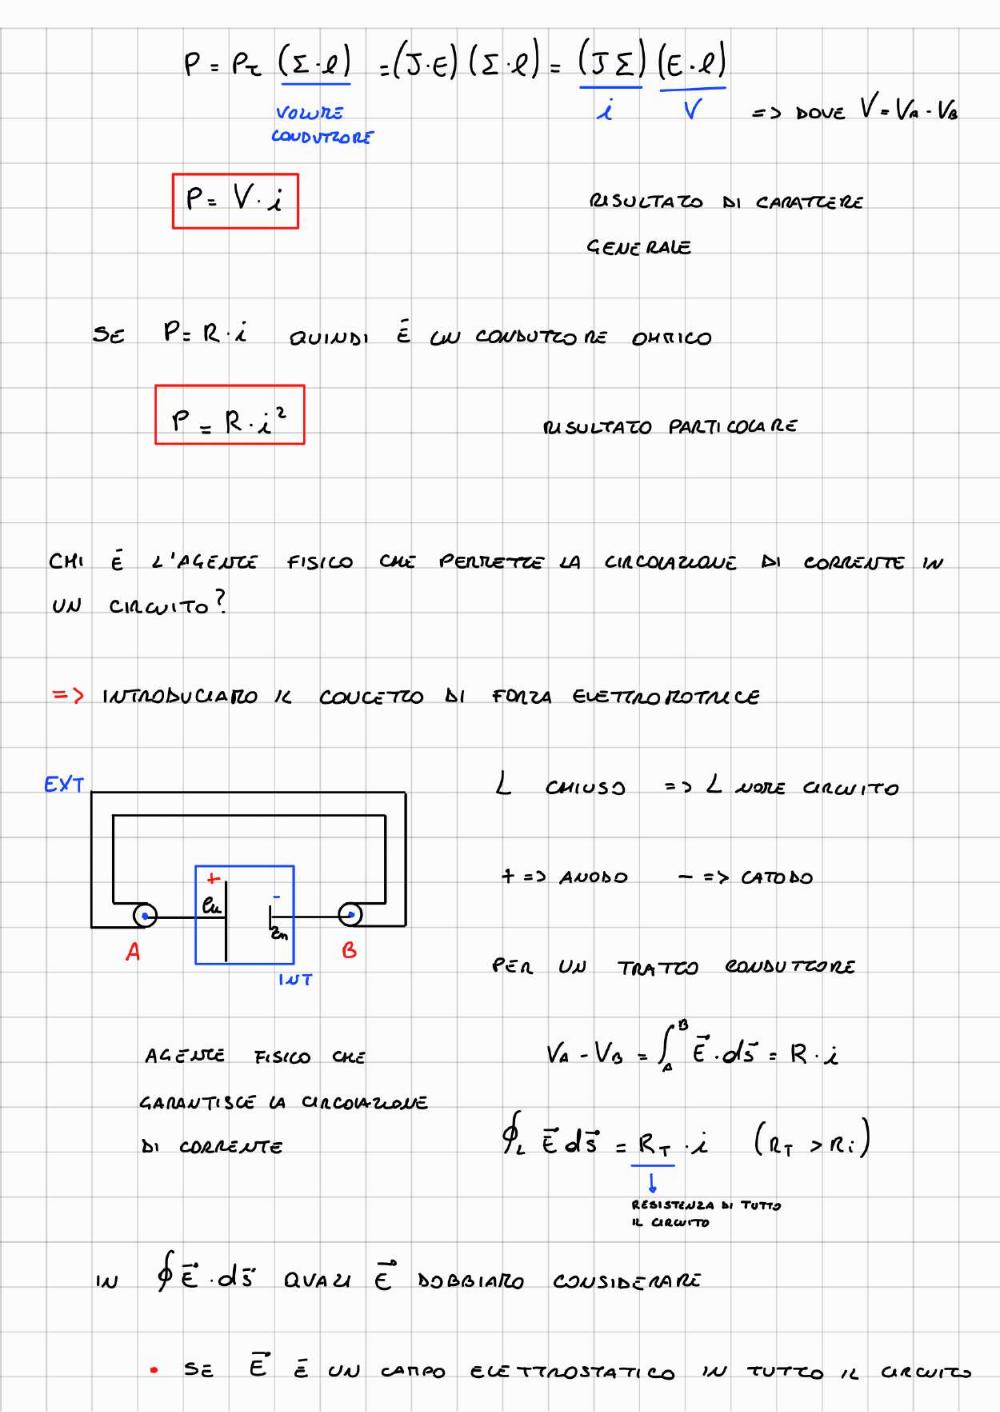 P = Pτ (Σ·l) = (J·E) (Σ·l) = (J Σ) (E·l)
VOLUME
CONDUTTORE
i
V
=> DOVE V = VA - VB
P = V · i
RISULTATO DI CARATTERE
GENERALE
SE P = R · i QUINDI É UN CONDUTTORE OHMICO
P = R · i²
RISULTATO PARTICOLARE
CHI É L'AGENTE FISICO CHE PERMETTE LA CIRCOLAZIONE DI CORRENTE IN
UN CIRCUITO?
=> INTRODUCIAMO IL CONCETTO DI FORZA ELETTROMOTRICE
EXT
L CHIUSO => L NOME CIRCUITO
+ => ANODO - => CATODO
+
-
Cu
Zn
A
B
INT
PER UN TRATTO CONDUTTORE
VA - VB = ∫_A^B E⃗ · ds⃗ = R · i
AGENTE FISICO CHE
GARANTISCE LA CIRCOLAZIONE
DI CORRENTE
∮_L E⃗ ds⃗ = R_T · i (R_T > Ri)
RESISTENZA DI TUTTO
IL CIRCUITO
IN ∮ E⃗ · ds⃗ QUALI E⃗ DOBBIAMO CONSIDERARE
• SE E⃗ É UN CAMPO ELETTROSTATICO IN TUTTO IL CIRCUITO